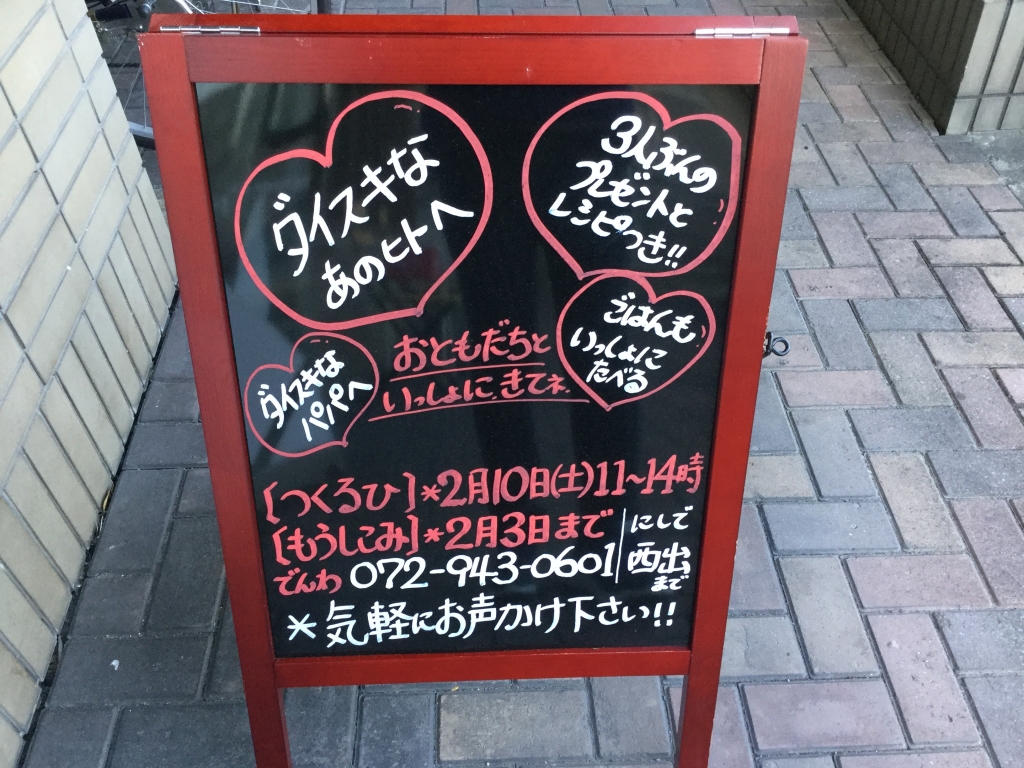 ダイスキな
あのヒトへ
3人ぶんの
プレゼントと
レシピつき!!
ごはんも
いっしょに
たべる
ダイスキな
パパへ
おともだちと
いっしょに、きてネ。
[つくるひ]*2月10日(土)11~14時
[もうしこみ]*2月3日まで
でんわ 072-943-0601
にしで
西出
まで
*気軽にお声かけ下さい!!